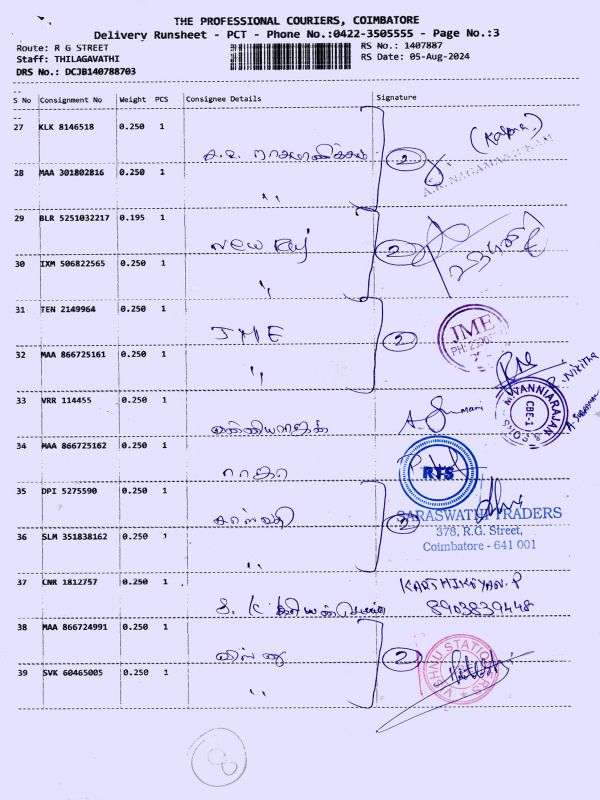 THE PROFESSIONAL COURIERS, COIMBATORE
Delivery Runsheet - PCT - Phone No.:0422-3505555 - Page No.:3
Route: R G STREET
RS No.: 1407887
Staff: THILAGAVATHI
RS Date: 05-Aug-2024
DRS No.: DCJB140788703
S No Consignment No Weight PCS Consignee Details Signature
27 KLK 8146518 0.250 1
2
28 MAA 301802816 0.250 1 "
29 BLR 5251032217 0.195 1
New Raj
2
30 IXM 506822565 0.250 1 "
31 TEN 2149964 0.250 1
JME
2
JME
32 MAA 866725161 0.250 1 "
33 VRR 114455 0.250 1
VANNIARAJAN
CBE-1
34 MAA 866725162 0.250 1
RTS
35 DPI 5275590 0.250 1
2
SARASWATHI TRADERS
378, R.G. Street,
Coimbatore - 641 001
36 SLM 351838162 0.250 1 "
37 CNR 1812757 0.250 1
KARTHIKEYAN.P
8903839448
38 MAA 866724991 0.250 1
2
39 SVK 60465005 0.250 1 "
8